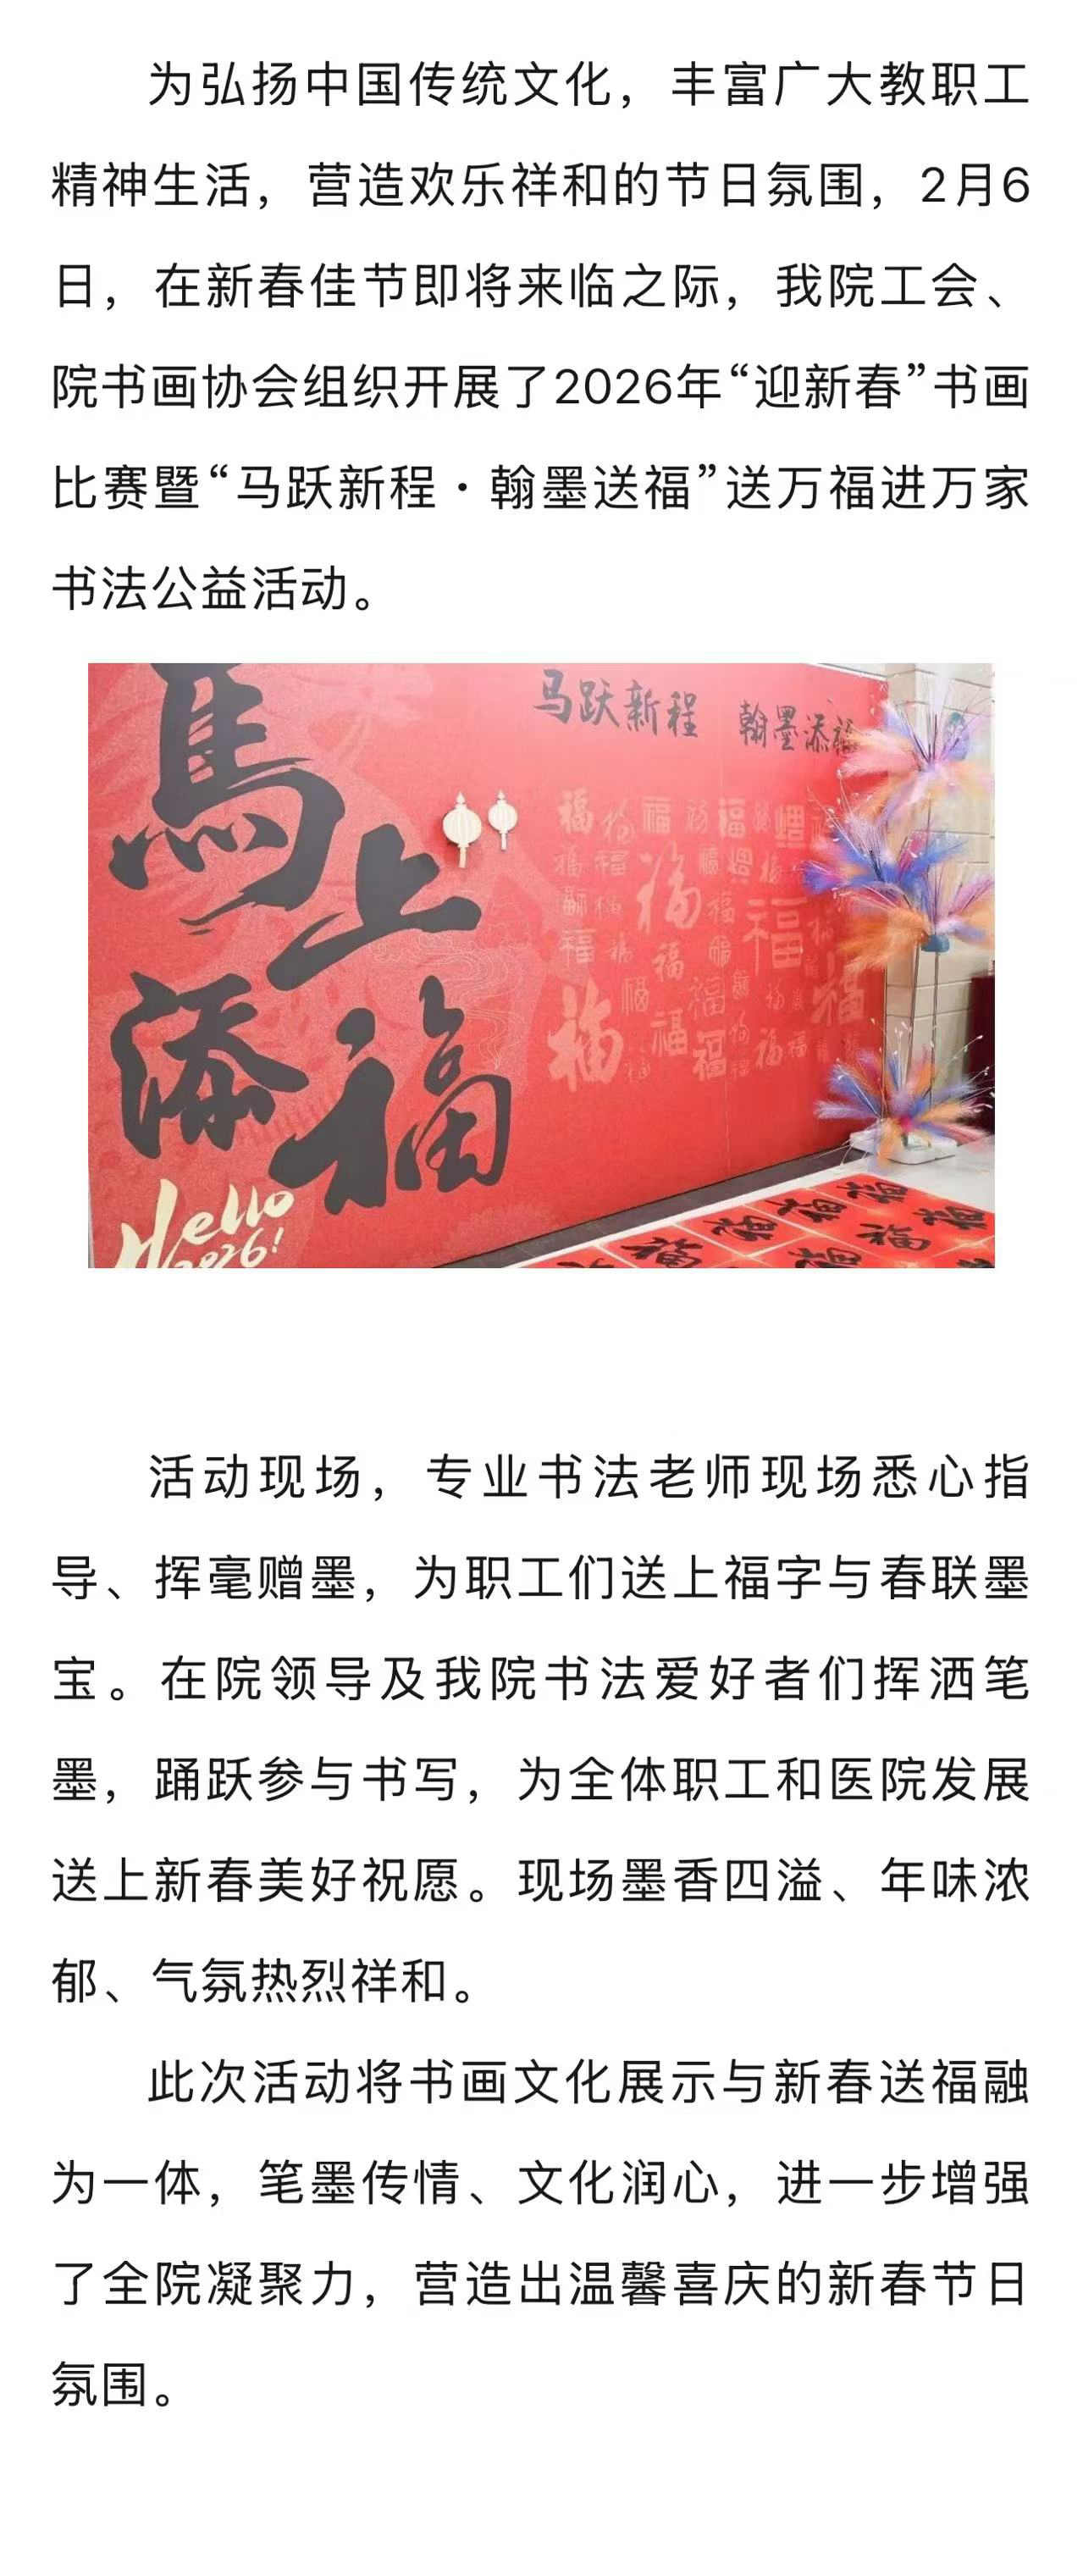 为弘扬中国传统文化，丰富广大教职工
精神生活，营造欢乐祥和的节日氛围，2月6
日，在新春佳节即将来临之际，我院工会、
院书画协会组织开展了2026年“迎新春”书画
比赛暨“马跃新程・翰墨送福”送万福进万家
书法公益活动。
馬上
添福
Hello
2026!
马跃新程 翰墨添福
福
活动现场，专业书法老师现场悉心指
导、挥毫赠墨，为职工们送上福字与春联墨
宝。在院领导及我院书法爱好者们挥洒笔
墨，踊跃参与书写，为全体职工和医院发展
送上新春美好祝愿。现场墨香四溢、年味浓
郁、气氛热烈祥和。
此次活动将书画文化展示与新春送福融
为一体，笔墨传情、文化润心，进一步增强
了全院凝聚力，营造出温馨喜庆的新春节日
氛围。